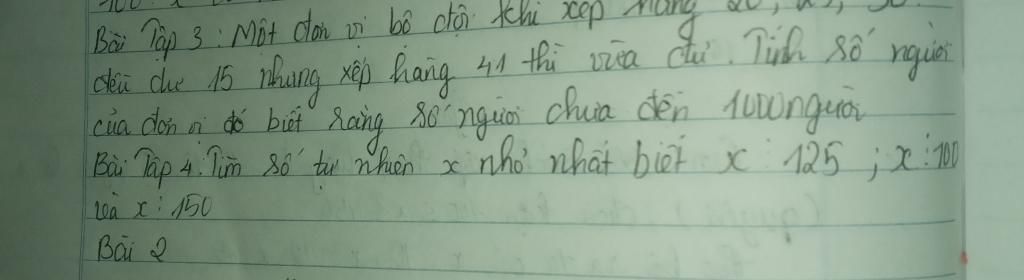 Bài Tập 3: Một đơn vị bộ đội khi xếp hàng 20, 25, 30
đều dư 15 nhưng xếp hàng 41 thì vừa đủ. Tính số người
của đơn vị đó biết rằng số người chưa đến 1000 người
Bài Tập 4: Tìm số tự nhiên x nhỏ nhất biết x ⋮ 125 ; x ⋮ 100
và x ⋮ 150
Bài 2